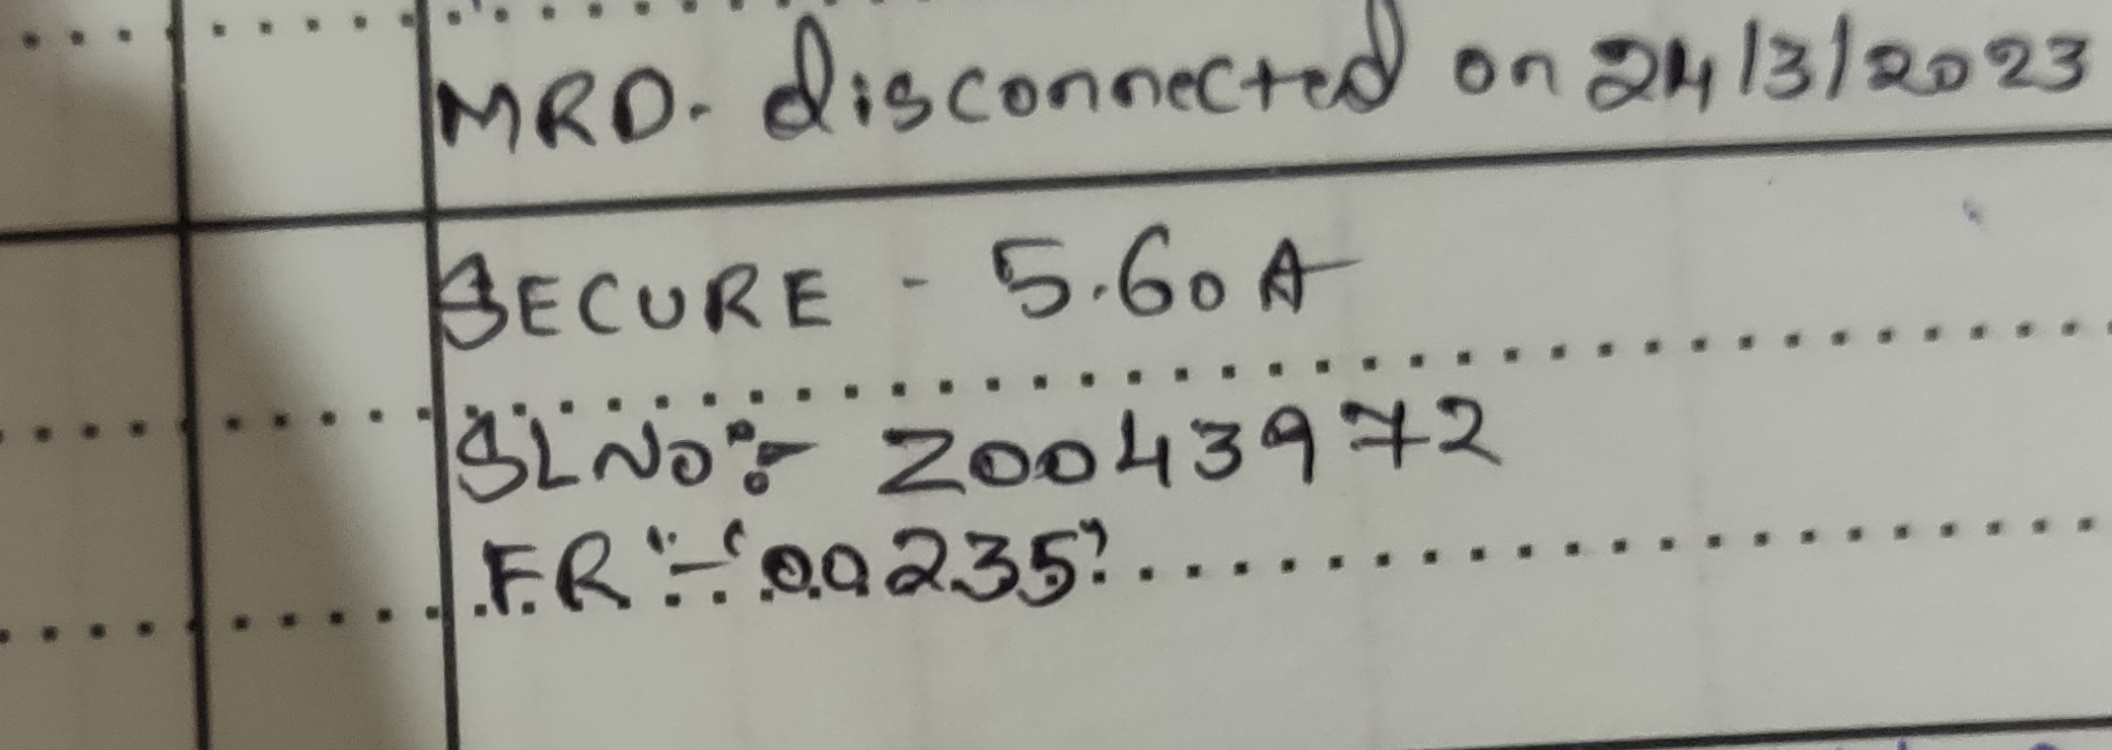 MRD. disconnected on 24/3/2023
SECURE - 5.60 A
SL No:- 20043972
FR :- '00235'